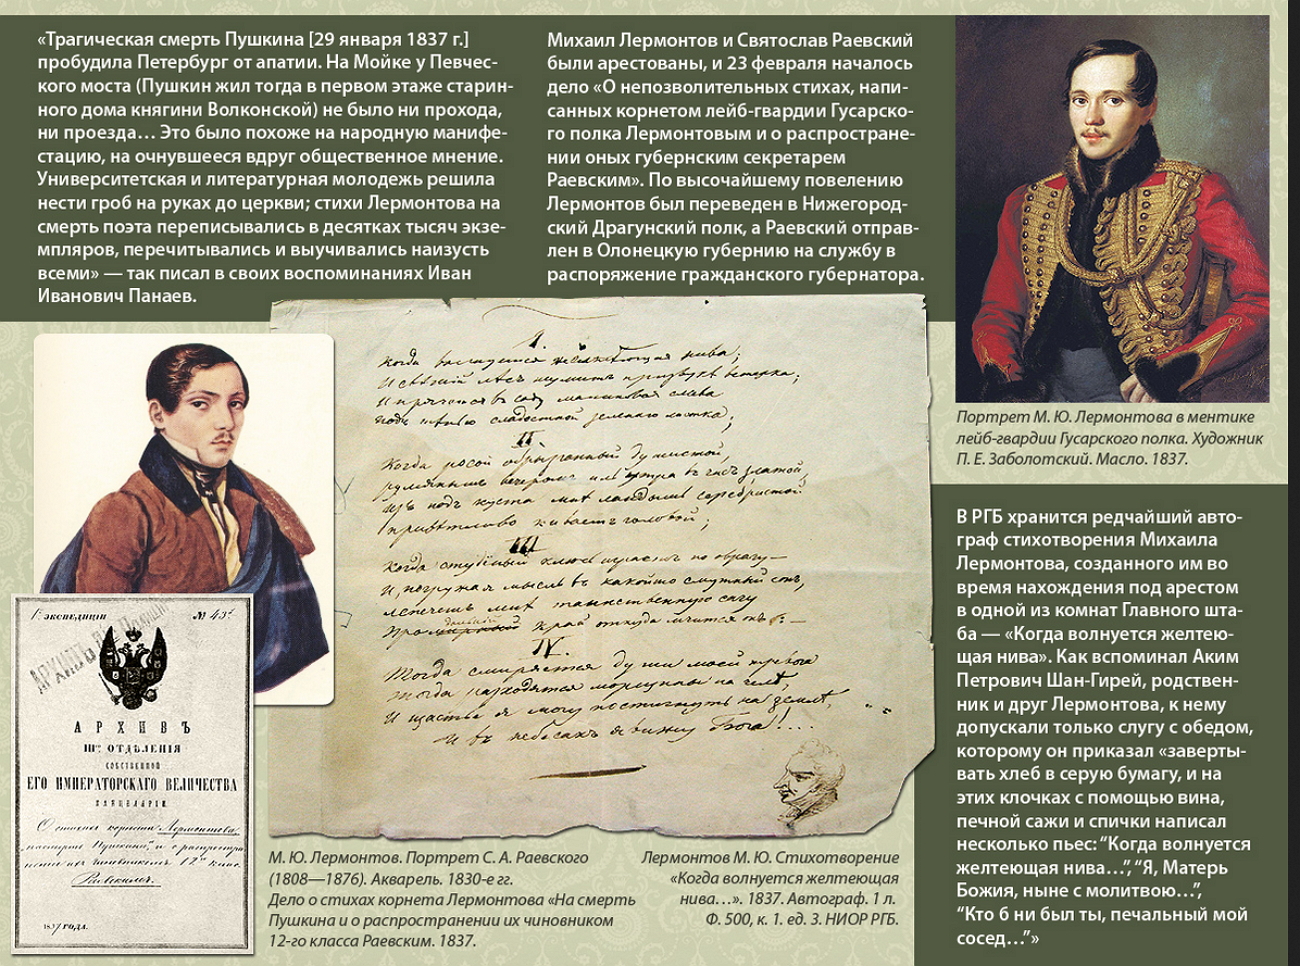 «Трагическая смерть Пушкина [29 января 1837 г.]
пробудила Петербург от апатии. На Мойке у Певчес-
кого моста (Пушкин жил тогда в первом этаже старин-
ного дома княгини Волконской) не было ни прохода,
ни проезда... Это было похоже на народную манифе-
стацию, на очнувшееся вдруг общественное мнение.
Университетская и литературная молодежь решила
нести гроб на руках до церкви; стихи Лермонтова на
смерть поэта переписывались в десятках тысяч экзе-
мпляров, перечитывались и выучивались наизусть
всеми» — так писал в своих воспоминаниях Иван
Иванович Панаев.
Михаил Лермонтов и Святослав Раевский
были арестованы, и 23 февраля началось
дело «О непозволительных стихах, напи-
санных корнетом лейб-гвардии Гусарско-
го полка Лермонтовым и о распростране-
нии оных губернским секретарем
Раевским». По высочайшему повелению
Лермонтов был переведен в Нижегород-
ский Драгунский полк, а Раевский отправ-
лен в Олонецкую губернию на службу в
распоряжение гражданского губернатора.
Портрет М. Ю. Лермонтова в ментике
лейб-гвардии Гусарского полка. Художник
П. Е. Заболотский. Масло. 1837.
I.
Когда волнуется желтеющая нива;
И свежий лесъ шумитъ при звуке ветерка;
И прячется въ саду малиновая слива
Подъ тенью сладостной зеленаго листка;
II
Когда росой обрызганный душистой,
румянымъ вечеромъ иль утра въ часъ златой,
изъ подъ куста мне ландышъ серебристой
приветливо киваетъ головой;
III
Когда студёный ключъ играетъ по оврагу—
И, погружая мысль въ какой-то смутный сонъ,
лепечетъ мне таинственную сагу
Про мирный край откуда мчится онъ: —
IV.
Тогда смиряется души моей тревога
тогда расходятся морщины на челе,
И счастье я могу постигнуть на земле,
И въ небесахъ я вижу Бога!...
Iя экспедиции № 43й
АРХИВЪ
IIIго ОТДѢЛЕНІЯ
СОБСТВЕННОЙ
ЕГО ИМПЕРАТОРСКАГО ВЕЛИЧЕСТВА
КАНЦЕЛЯРІИ.
О стихахъ корнета Лермонтова
Пушкина, и о распростра
чиновникомъ 12го класс.
Раевскимъ.
1837 ГОДА.
М. Ю. Лермонтов. Портрет С. А. Раевского
(1808—1876). Акварель. 1830-е гг.
Дело о стихах корнета Лермонтова «На смерть
Пушкина и о распространении их чиновником
12-го класса Раевским. 1837.
Лермонтов М. Ю. Стихотворение
«Когда волнуется желтеющая
нива...». 1837. Автограф. 1 л.
Ф. 500, к. 1. ед. 3. НИОР РГБ.
В РГБ хранится редчайший авто-
граф стихотворения Михаила
Лермонтова, созданного им во
время нахождения под арестом
в одной из комнат Главного шта-
ба — «Когда волнуется желтею-
щая нива». Как вспоминал Аким
Петрович Шан-Гирей, родствен-
ник и друг Лермонтова, к нему
допускали только слугу с обедом,
которому он приказал «заверты-
вать хлеб в серую бумагу, и на
этих клочках с помощью вина,
печной сажи и спички написал
несколько пьес: “Когда волнуется
желтеющая нива...”, “Я, Матерь
Божия, ныне с молитвою...”,
“Кто б ни был ты, печальный мой
сосед...”»